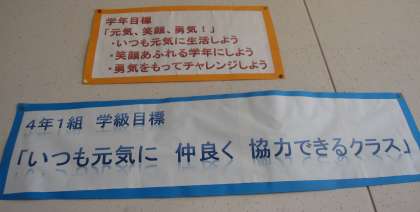 学年目標
「元気、笑顔、勇気！」
・いつも元気に生活しよう
・笑顔あふれる学年にしよう
・勇気をもってチャレンジしよう
4年1組 学級目標
「いつも元気に 仲良く 協力できるクラス」